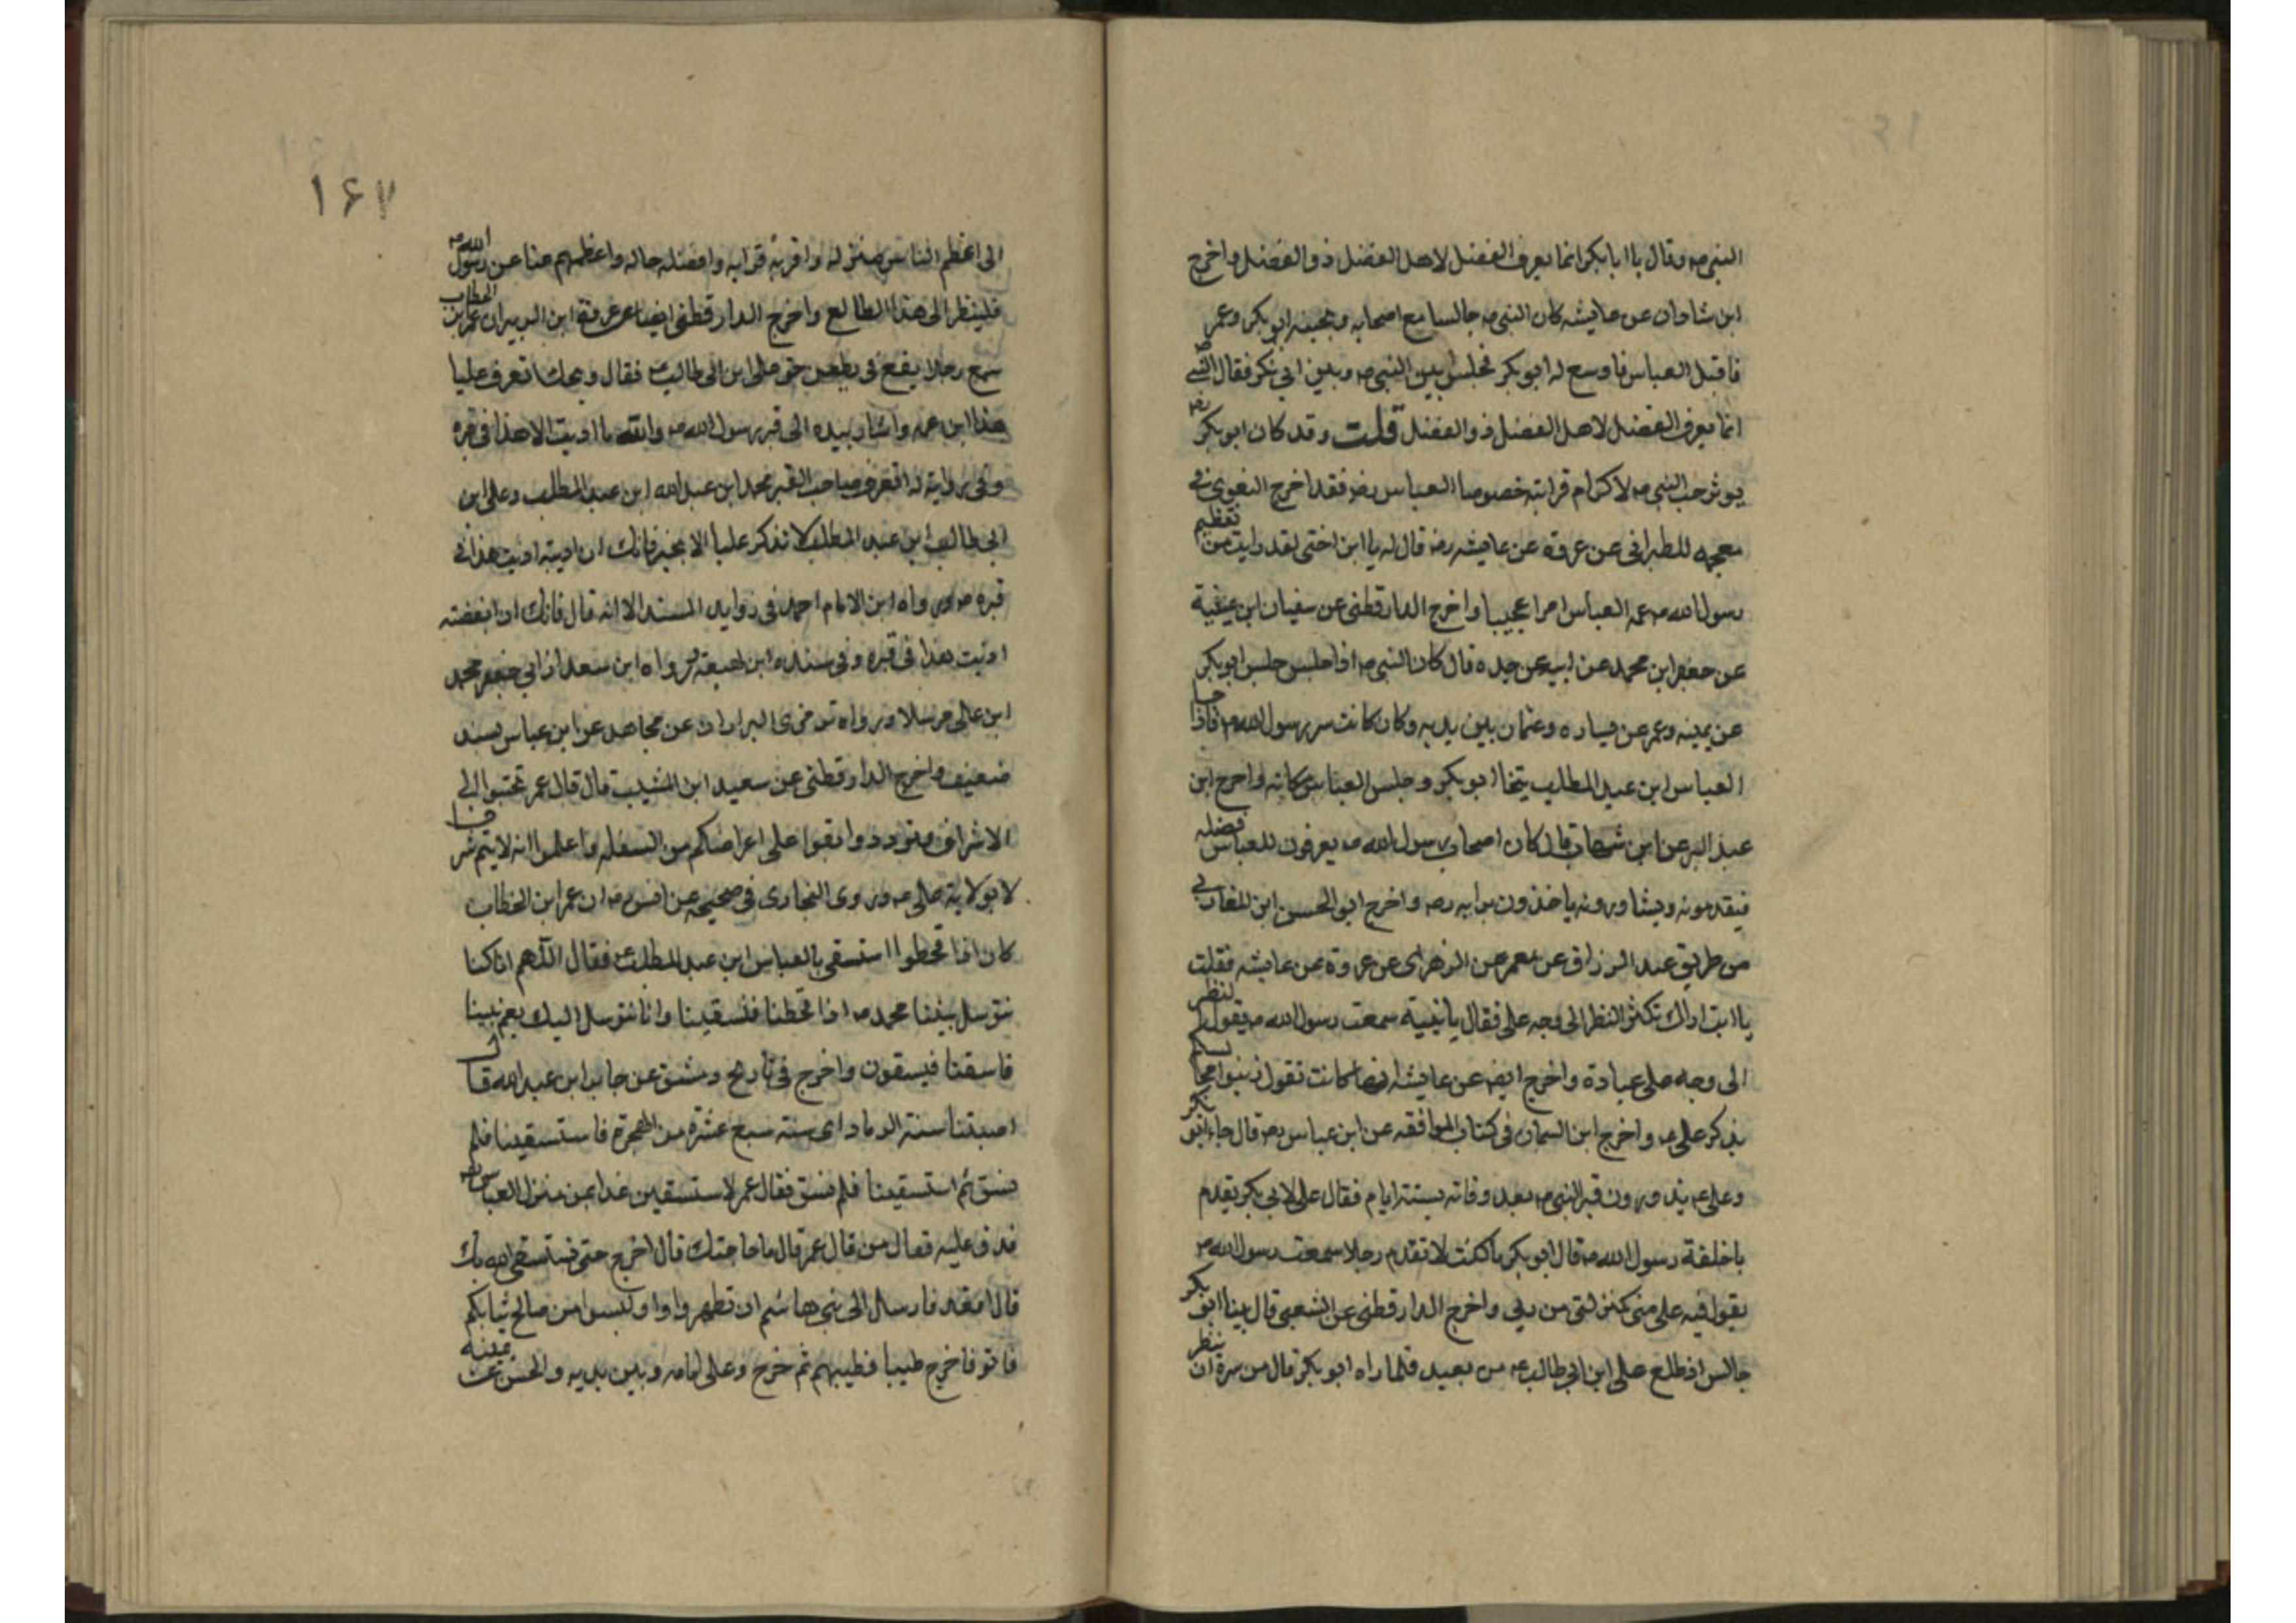 النبي صم وقال يا ابا بكر انما يعرف الفضل لاهل الفضل ذو الفضل واخرج
ابن شاذان عن عايشه كان النبي صم جالسا مع اصحابه وبجنبه ابو بكر وعمر
فاقبل العباس فاوسع له ابو بكر فجلس بين النبي صم وبين ابي بكر فقال النبي صم
انما يعرف الفضل لاهل الفضل ذو الفضل قلت وقد كان ابو بكر رضه
يوثر حب النبي صم لاكرام قرابته خصوصا العباس رضه فقد اخرج البغوي في
معجمه للطبراني عن عروة عن عايشه رضه قال له يا ابن اختي لقد رايت من تعظيم
رسول الله صم عمه العباس امرا عجيبا واخرج الدارقطني عن سفيان ابن عيينة
عن جعفر ابن محمد عن ابيه عن جده قال كان النبي صم اذا جلس جلس ابو بكر
عن يمينه وعمر عن يساره وعثمان بين يديه وكان كانت سر رسول الله صم فاذا جا
العباس ابن عبد المطلب يتخا ابو بكر وجلس العباس مكانه واخرج ابن
عبد البر عن ابن شهاب قال كان اصحاب رسول الله صم يعرفون للعباس فضله
فيقدمونه ويشاورونه ياخذون برايه رضه واخرج ابو الحسن ابن المغازلي
من طريق عبد الرزاق عن معمر عن الزهرى عن عروة عن عايشه فقلت
يا ابت اراك تكثر النظر الى وجه على فقال يا بنية سمعت رسول الله صم يقول النظر
الى وجه على عبادة واخرج ايضه عن عايشه انها كانت تقول زينوا مجالسكم
بذكر على عم واخرج ابن السمان فى كتاب الموافقه عن ابن عباس رضه قال جاء ابو بكر
وعلى عم يزورون قبر النبي صم بعد وفاته بستة ايام فقال على لابي بكر تقدم
يا خليفة رسول الله صم قال ابو بكر ما كنت لا تقدم رجلا سمعت رسول الله صم
يقول فيه على منى كمنزلتى من ربي واخرج الدارقطنى عن الشعبي قال بينا ابو بكر
جالس اذ طلع على ابن ابي طالب عم من بعيد فلما راه ابو بكر قال من سره ان ينظر
۱۶۷
الى اعظم الناس منزله واقربه قرابه وافضله حاله واعظمهم عنا عن رسول الله صم
فلينظر الى هذا الطالع واخرج الدارقطني ايضا عن عروة ابن الزبير ان عمر ابن الخطاب
سمع رجلا يقع في على ابن ابي طالب فقال ويحك تعرف عليا
هذا ابن عمه واشار بيده الى قبر رسول الله صم والله ما اذيت الا هذا في قبره
وفي رواية له اتعرف صاحب القبر محمد ابن عبد الله ابن عبد المطلب وعلى ابن
ابي طالب ابن عبد المطلب لا تذكر عليا الا بخير فانك ان اذيته اذيت هذا في
قبره صم ورواه ابن الامام احمد في زوايد المسند الا انه قال فانك ان ابغضته
اذيت هذا في قبره وفي سنده ابن لهيعة ورواه ابن سعد ابي جعفر محمد
ابن على مرسلا ورواه عن مجاهد عن ابن عباس بسند
ضعيف واخرج الدارقطني عن سعيد ابن المسيب قال قال عمر تحببوا الى
الاشراف وتوددوا واتقوا على اعراضكم من السفله واعلموا انه لا يتم شرف
الا بولاية على عم وروى البخارى في صحيحه عن انس رضه ان عمر ابن الخطاب
كان اذا قحطوا استسقى بالعباس ابن عبد المطلب فقال اللهم انا كنا
نتوسل بنبينا محمد صم اذا قحطنا فتسقينا وانا نتوسل اليك بعم نبينا
فاسقنا فيسقون واخرج في تاريخ دمشق عن جابر ابن عبد الله قال
اصبتنا سنة الرماد اى سنة سبع عشرة من الهجرة فاستسقينا فلم
نسق ثم استسقينا فلم نسق فقال عمر لاستسقين غدا بمن منزل العباس رضه
فدق عليه فقال من قال عمر قال ما حاجتك قال اخرج حتى نستسقي الله بك
قال اقعد فارسل الى بني هاشم ان تطهروا والبسوا من صالح ثيابكم
فاتو فاخرج طيبا فطيبهم ثم خرج وعلى امامه وبين يديه والحسن عن يمينه